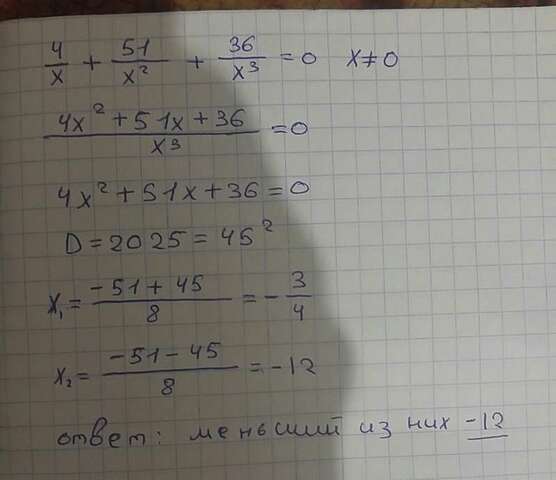 4/x + 51/x² + 36/x³ = 0 x ≠ 0
(4x² + 51x + 36)/x³ = 0
4x² + 51x + 36 = 0
D = 2025 = 45²
x₁ = (-51 + 45)/8 = -3/4
x₂ = (-51 - 45)/8 = -12
ответ: меньший из них -12